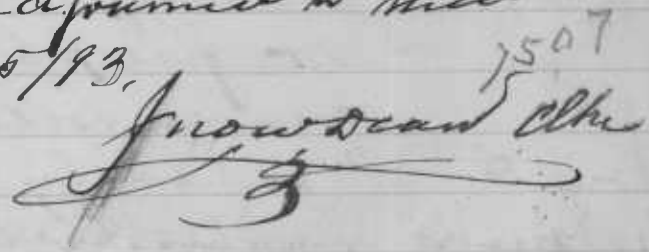 adjourned to meet
5/93.
1507
Jno W Dean Clk
3